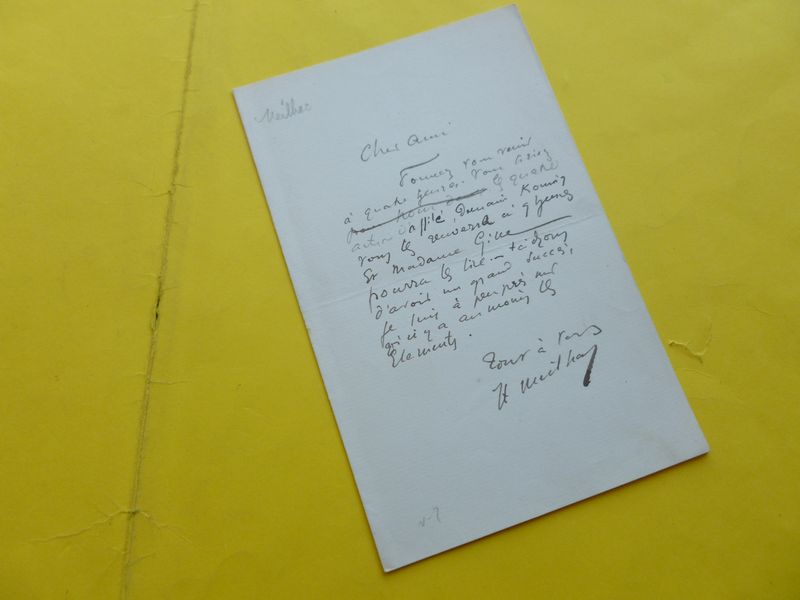 Meilhac
Cher ami
Pouvez vous venir
à quatre heures. Vous lirez
le quatre
acte Demain Koning
vous le renverra à 9 heures
Et Madame Gille
pourra le lire - tâchons
d'avoir un grand succès,
je suis à peu près sur
qu'il y a au moins les
Elements.
Tout à vous
H Meilhac